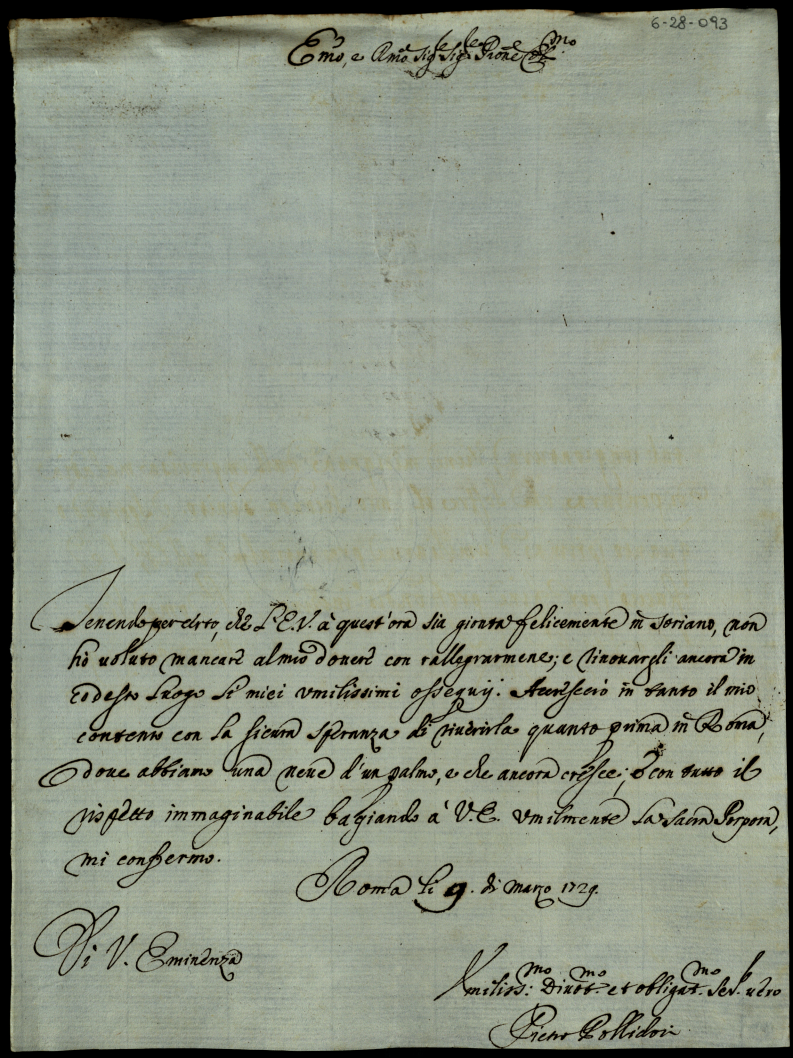 6-28-093
Em̃o, e Rm̃o Sig.re Sig.re Prõne Col.mo
Tenendo per certo, che l'E.V. à quest'ora sia gionta felicemente in Soriano, non
hò uoluto mancare al mio douere con rallegrarmene; e rinouargli ancora in
codesto luogo li miei vmilissimi ossequij. Accrescerò in tanto il mio
contento con la sicura speranza di riuerirla quanto prima in Roma,
doue abbiamo una neue d'un palmo, e che ancora cresce; e con tutto il
rispetto immaginabile bagiando à V.E. vmilmente la Sacra Porpora,
mi confermo.
Roma li 9. di Marzo 1729.
Di V. Eminenza
Vmiliss:mo Diuot.mo et obligat.mo Se.r uero
Pietro Pollidori